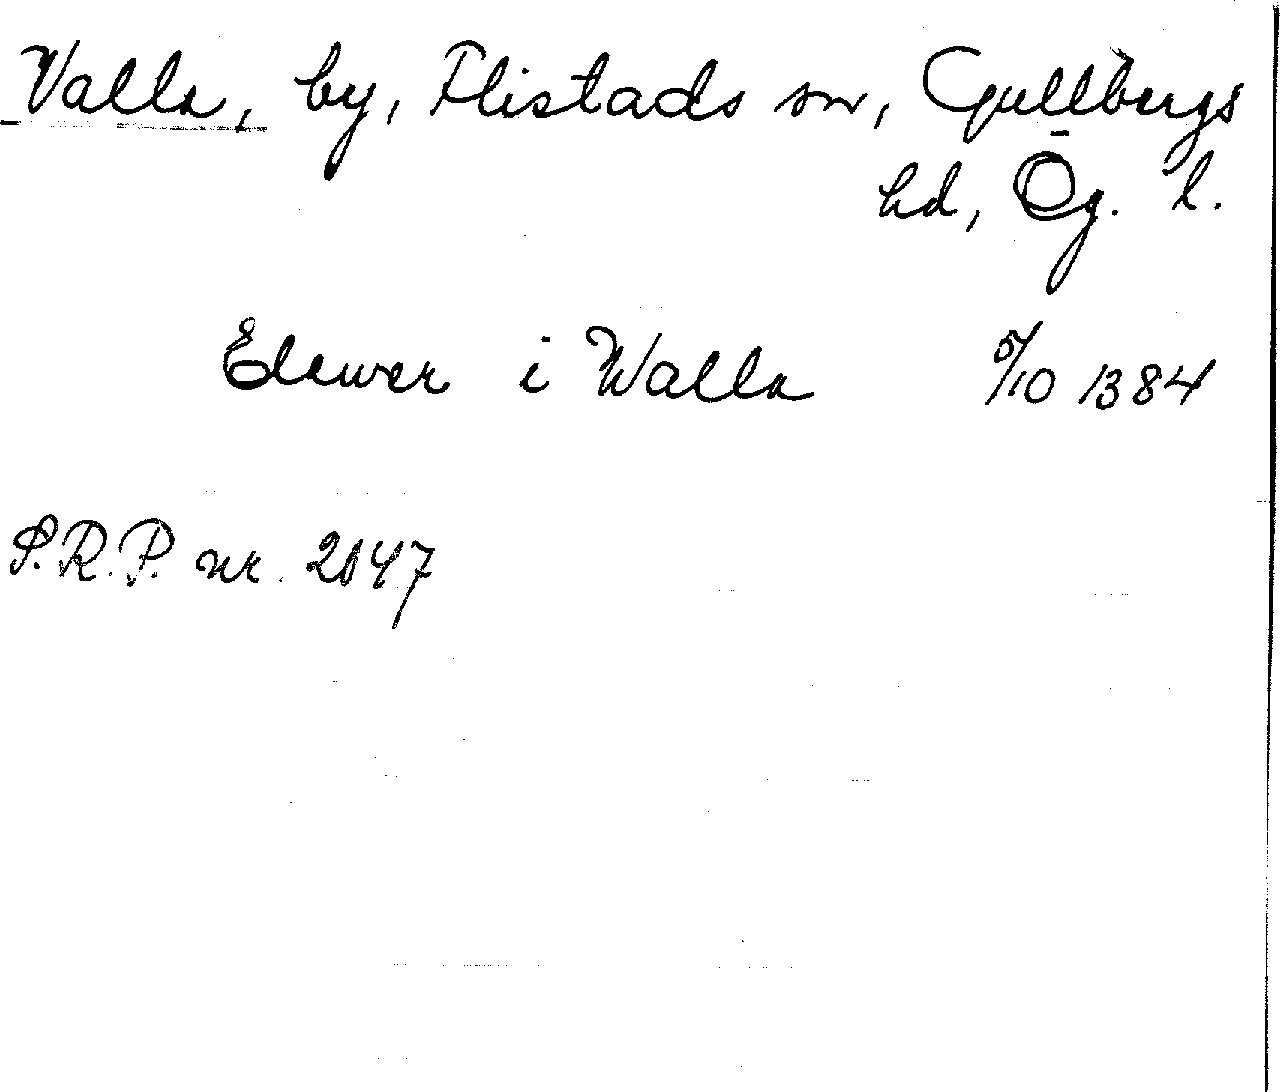 Valla, by, Flistads sn, Gullbergs
hd, Ög. l.
Elawer i Walla 5/10 1384
S.R.P. nr. 2047